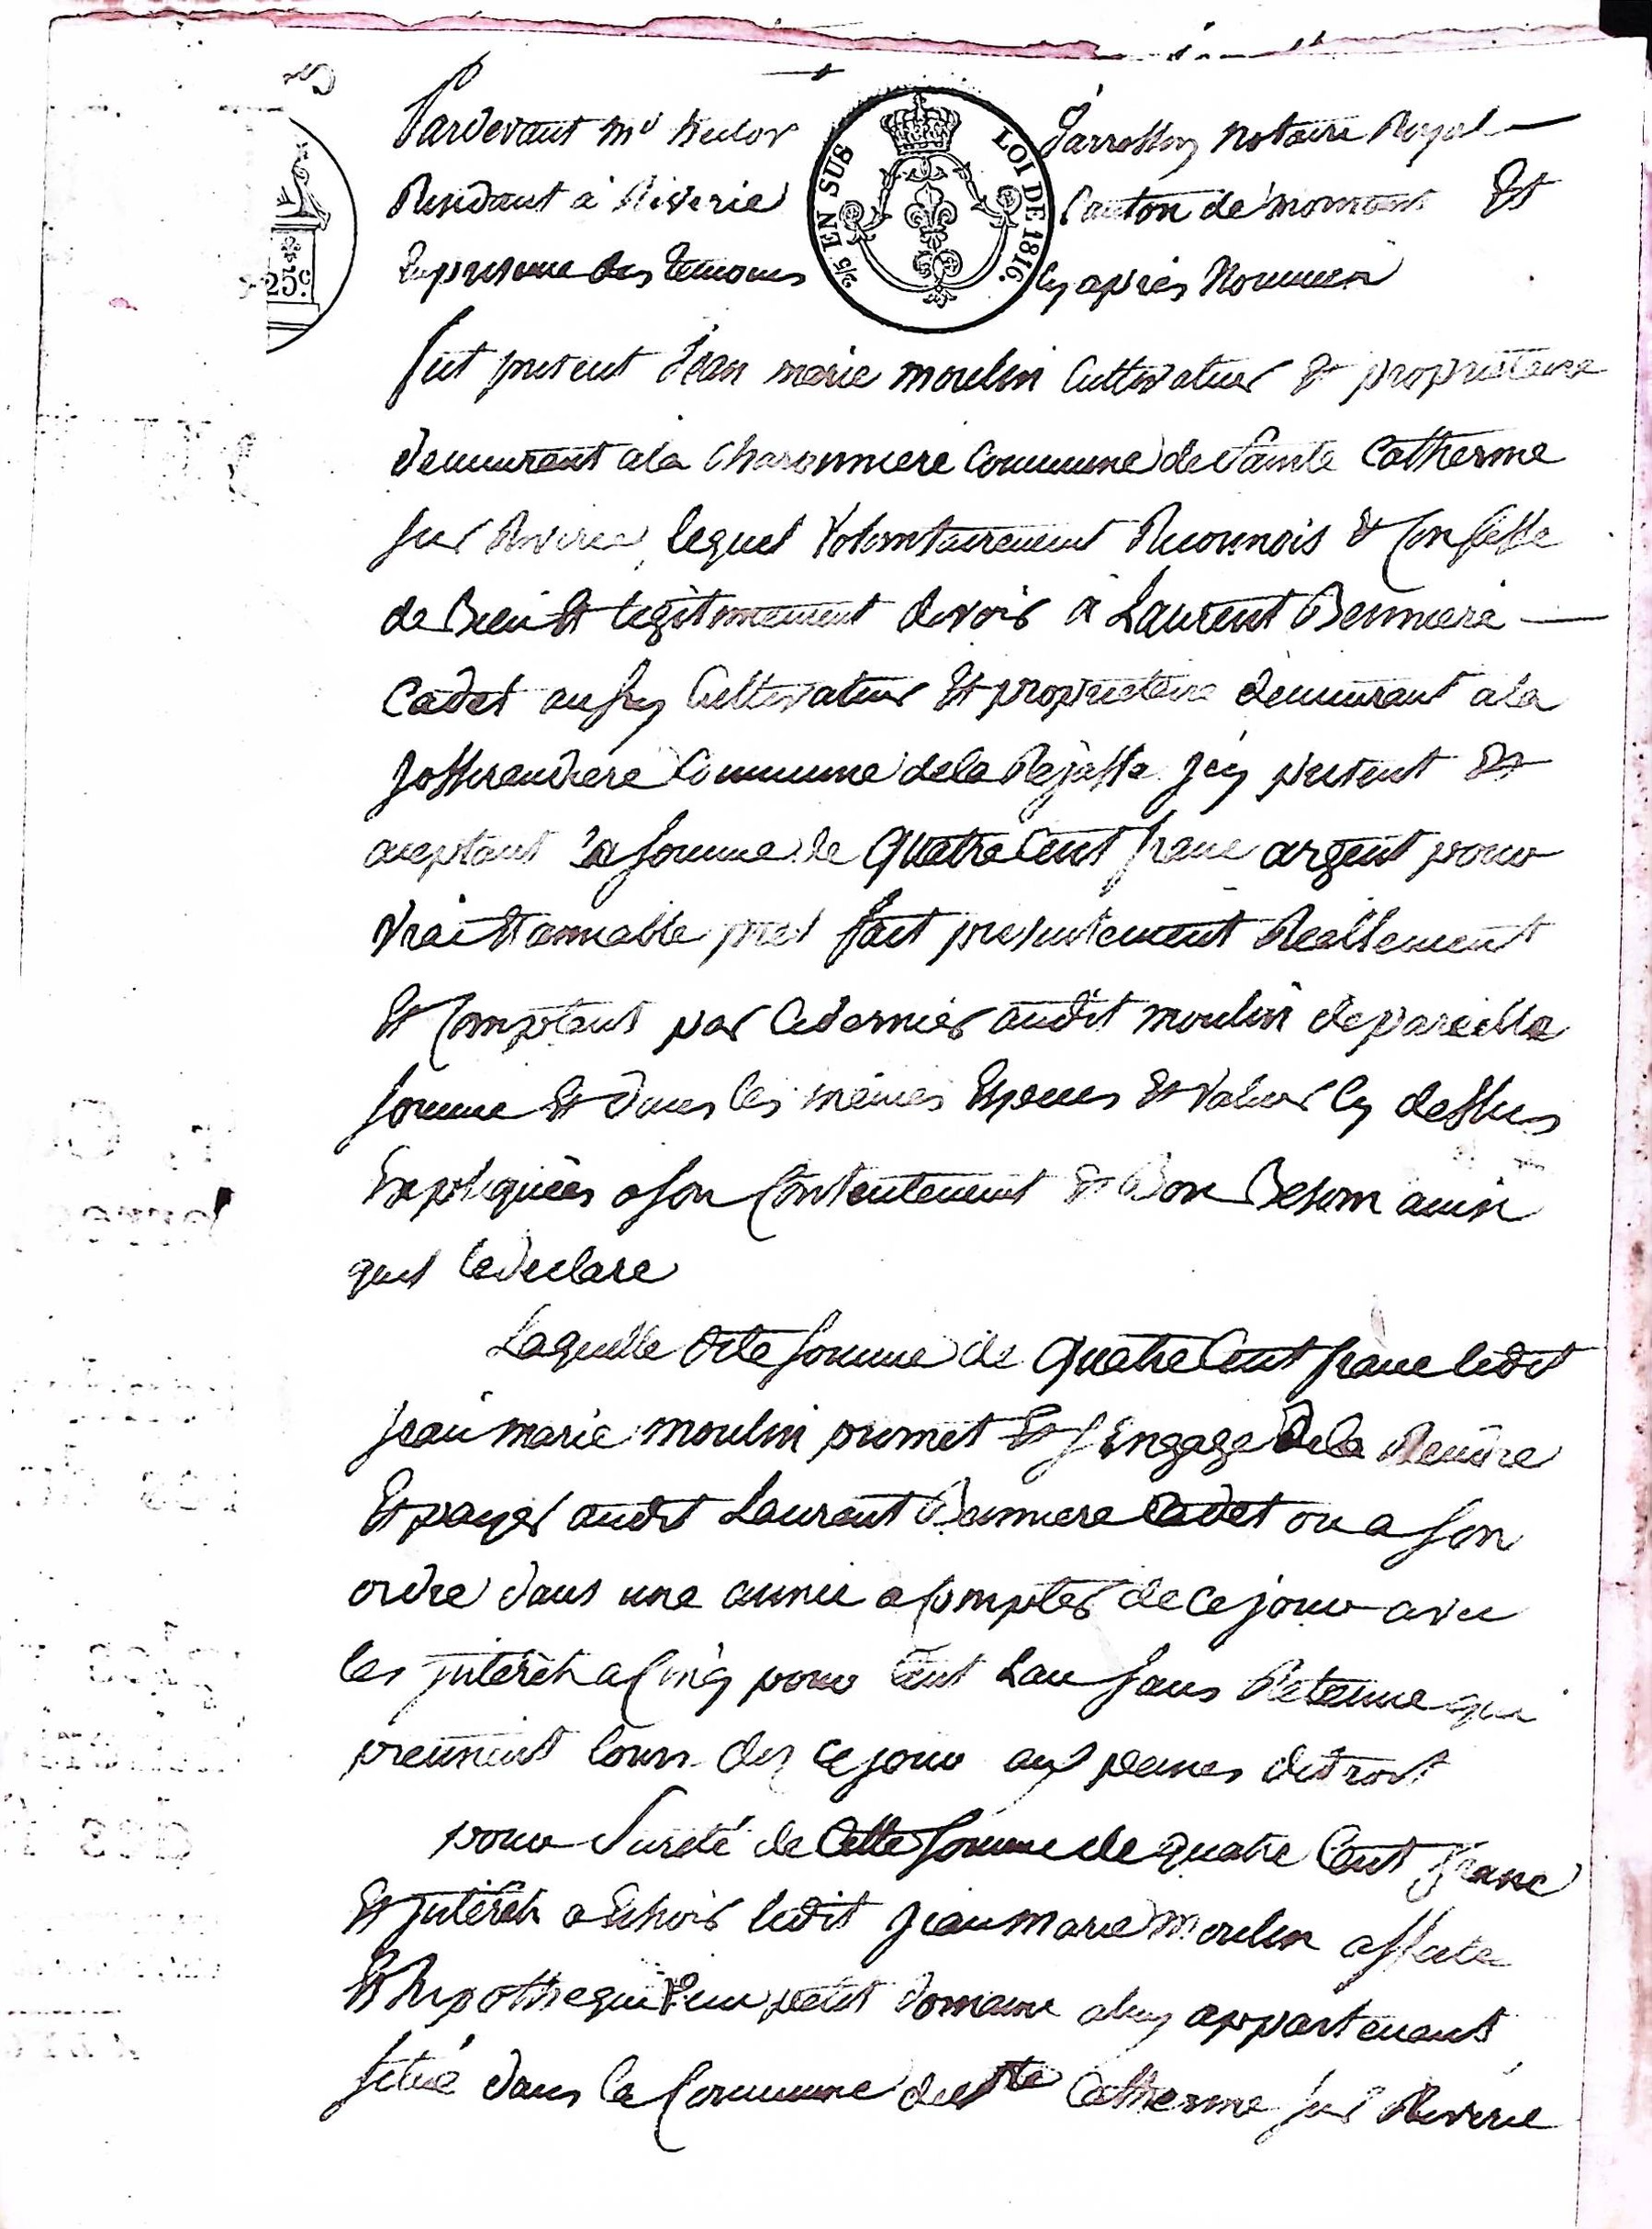 Pardevant Me hector Jarrosson notaire Royal
Residant à Riverie Canton de mornant Et
En presence des temoins Cy après Nommés
fut present Jean marie moulin Cultivateur & propriétaire
demeurant a la Charonniere Commune de Sainte Catherine
sur Riverie, lequel Volontairement Reconnois & Confesse
de Bien Et legitimement devoir à Laurent Benniere
Cadet aussy Cultivateur Et propriétaire demeurant a la
Josserandiere Commune de la Rejasse jcy présent Et
aceptant la somme de quatre Cent franc argent pour
Vrai Et amiable pret fait presentement Reellement
Et Comptant par Ce dernier audit moulin de pareille
somme Et dans les mêmes Especes Et Valeur Cy dessus
Expliquées a son Contentement Et Bon Besoin ainsi
quil le declare
Laquelle dite somme de quatre Cent franc ledit
jean marie moulin promet Et s'Engage de la Rendre
Et payer audit Laurent Benniere Cadet ou a son
ordre dans une année a Compter de ce jour avec
les jntérêt a Cinq pour Cent Lan sans Retenue qui
prennent Cours des ce jour aux peines de droit
pour Sureté de Cette somme de quatre Cent franc
Et jntérêt a Echoir ledit jean marie moulin affecte
Et hipotheque un petit domaine a luy appartenant
situé dans la Commune de Ste Catherine sur Riverie
25c.
2/5 EN SUS
LOI DE 1816.